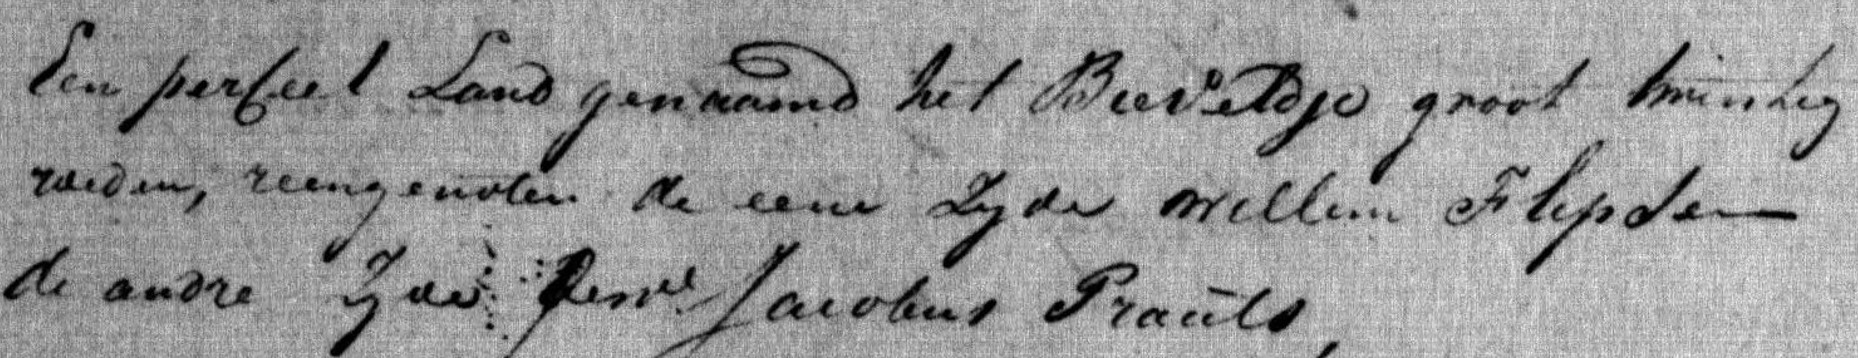 Een perceel Land genaamd het Bieveldje groot twintig
roeden, reengenoten de eene Zyde Willem Flipsen
de andre Zyde Jacobus Praats,